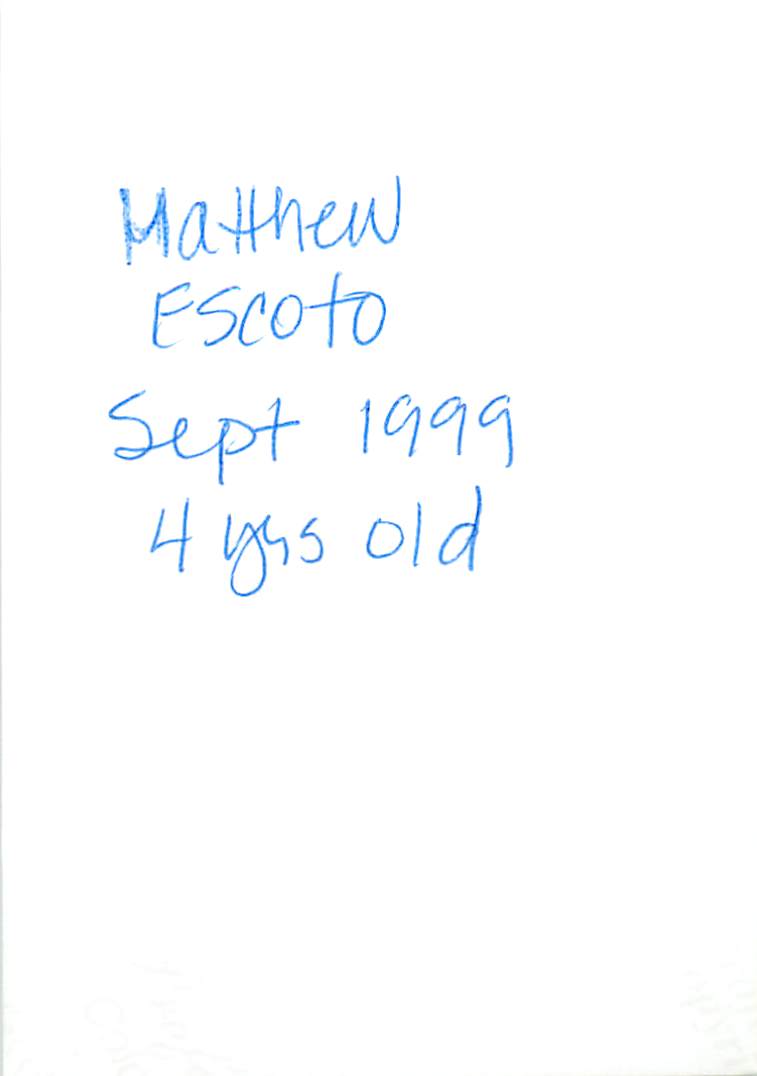 Matthew
Escoto
Sept 1999
4 yrs old